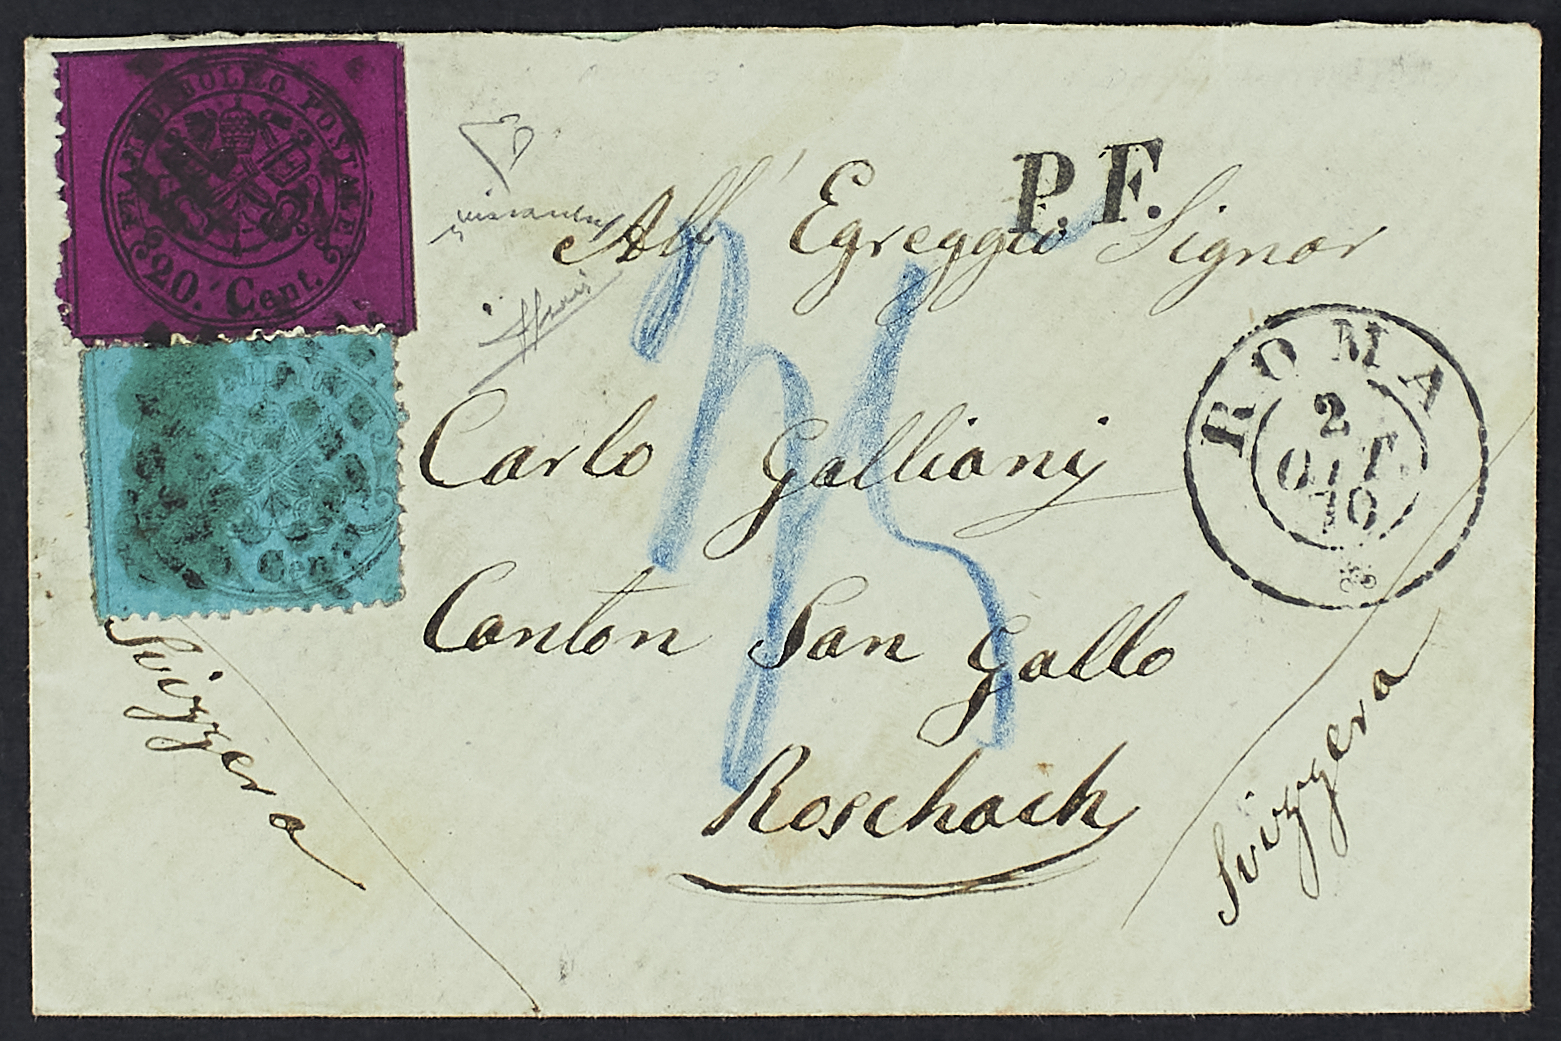 FRANCO BOLLO POSTALE
20. Cent.
Cent.
P. F.
All' Egreggio Signor
Carlo Galliani
Canton San Gallo
Roschach
Svizzera
Svizzera
ROMA
2
OTT.
70